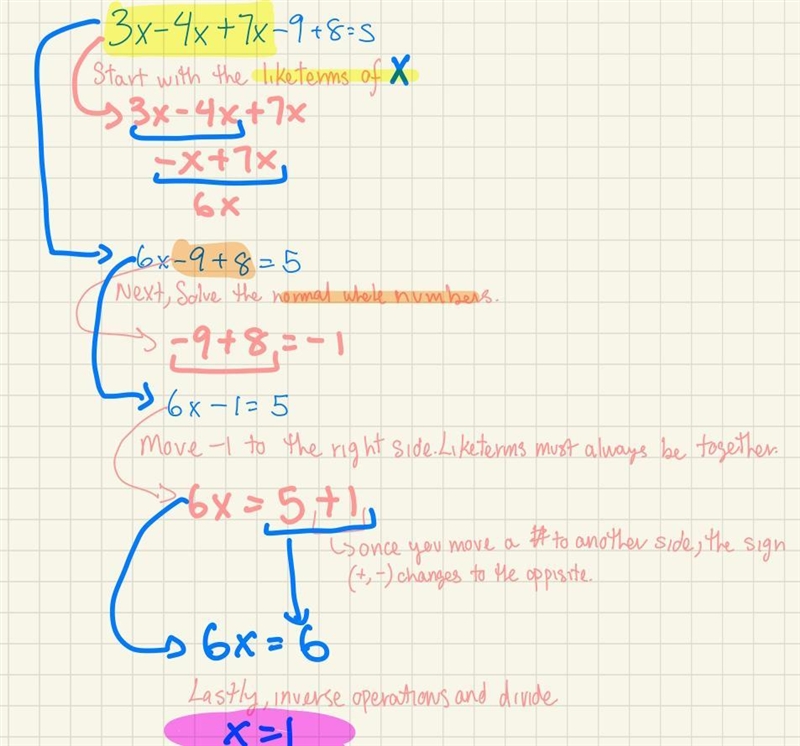 3x-4x+7x-9+8=5
Start with the like terms of X
3x-4x+7x
-x+7x
6x
6x-9+8=5
Next, Solve the normal whole numbers.
-9+8=-1
6x-1=5
Move -1 to the right side. Like terms must always be together.
6x=5+1
↳once you move a # to another side, the sign
(+,-) changes to the oppisite.
6x=6
Lastly, inverse operations and divide
x=1